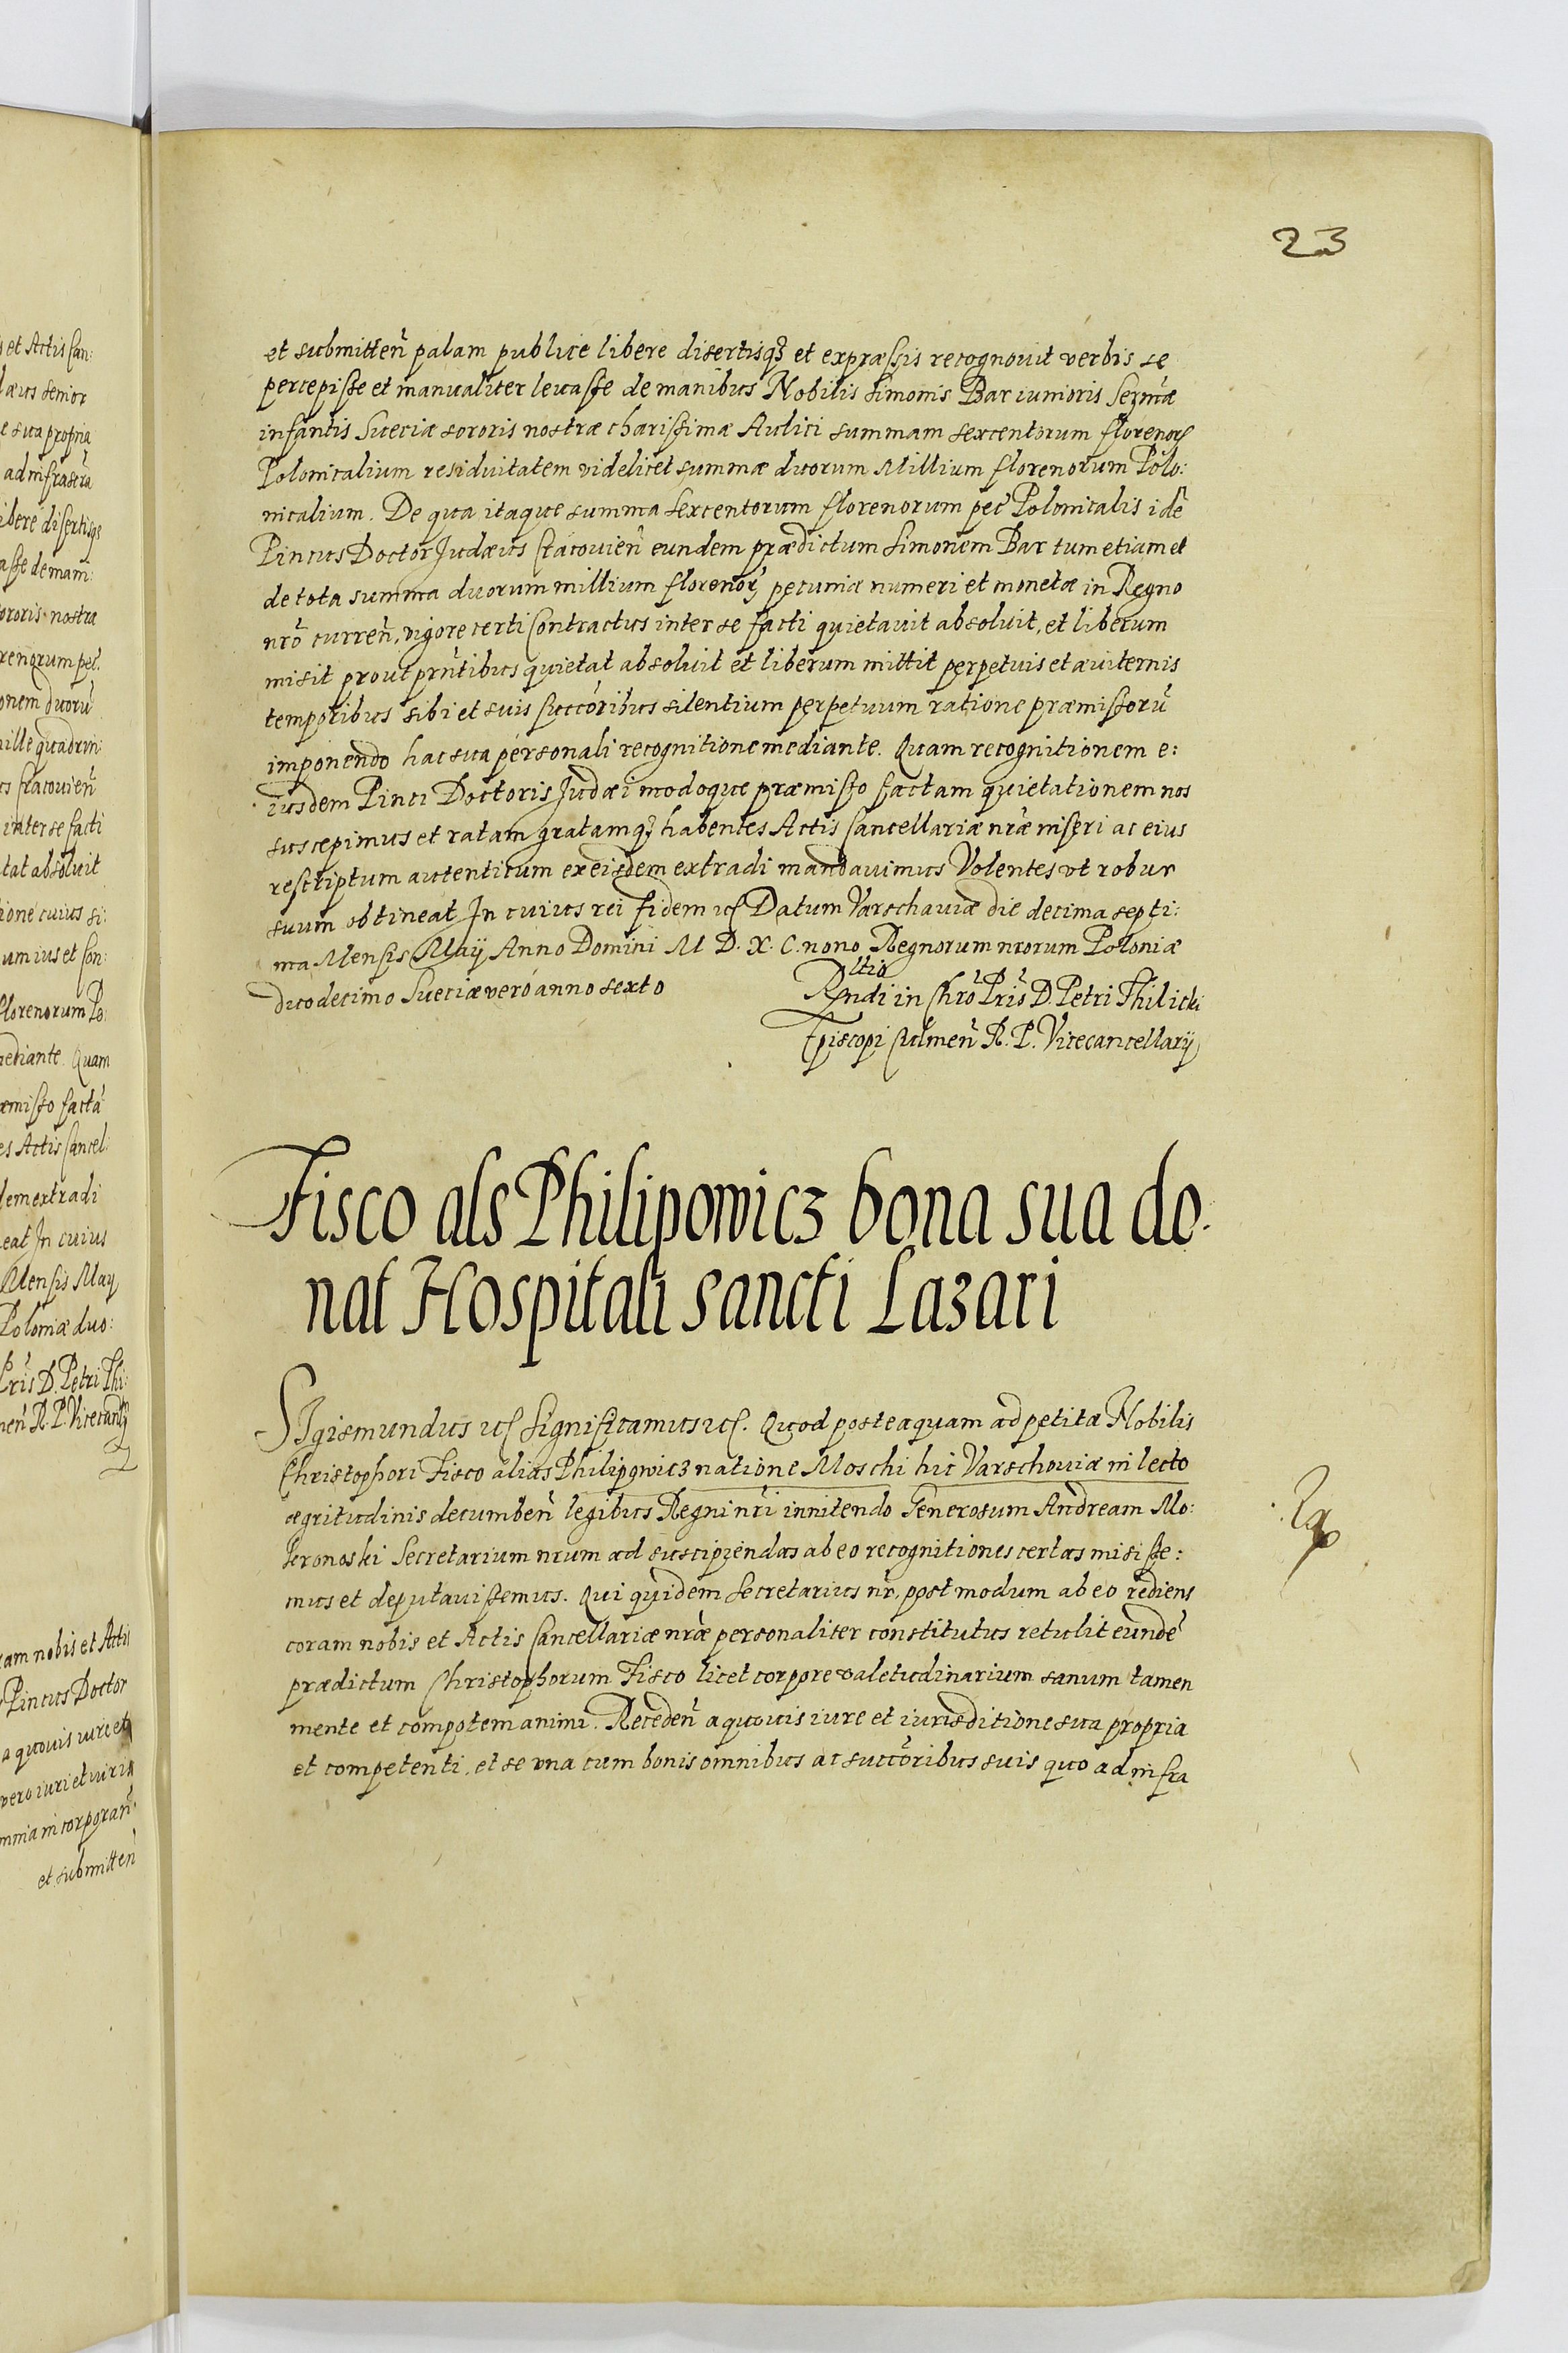 23
et submitten̄ palam publice libere disertisq3 et expræssis recognouit verbis se
percepisse et manualiter leuasse de manibus Nobilis Simonis Bar iunioris Sermæ
infantis Sueciæ sororis nostræ charissimæ Aulici summam sexcentorum florenor
Polonicalium residuitatem videlicet summæ duorum Millium florenorum Polo:
nicalium. De qua itaque summa sexcentorum florenorum pec Polonicalis idē
Pincus Doctor Judæus Cracouien̄ eundem prædictum Simonem Bar tum etiam et
de tota summa duorum millium florenor pecuniæ numeri et monetæ in Regno
nrō curren̄, vigore certi Contractus inter se facti quietauit absoluit, et liberum
misit prout prn̄tibus quietat absoluit et liberum mittit perpetuis et æuiternis
temporibus sibi et suis succōribus silentium perpetuum ratione præmissorū
imponendo hac sua personali recognitione mediante. Quam recognitionem e:
iusdem Pinci Doctoris Judæi modoque præmisso factam quietationem nos
suscepimus et ratam gratamq3 habentes Actis Cancellariæ nræ inseri ac eius
rescriptum autenticum ex eisdem extradi mandauimus Volentes vt robur
suum obtineat In cuius rei fidem etc Datum Varschauiæ die decima septi:
ma Mensis Maij Anno Domini M D. X. C. nono Regnorum nrorum Poloniæ
duodecimo Sueciæ vero anno sexto
Rltio
Rndi in Chrō Pris D. Petri Thilicki
Episcopi Culmen̄ R. P. Vicecancellarij
Fisco als Philipowicz bona sua do:
nat Hospitali sancti Lazari
SIgismundus etc Significamus etc. Quod posteaquam ad petita Nobilis
Christophori Fisco alias Philipowicz natione Moschi hic Varschouiæ in lecto
ægritudinis decumben̄ legibus Regni nri innitendo Generosum Andream Mo:
kronoski Secretarium nrum ad suscipiendas ab eo recognitiones certas misisse:
mus et deputauissemus. Qui quidem Secretarius nr. post modum ab eo rediens
coram nobis et Actis Cancellariæ nræ personaliter constitutus retulit eundē
prædictum Christophorum Fisco licet corpore valetudinarium sanum tamen
mente et compotem animi. Receden̄ a quouis iure et iurisditione sua propria
et competenti, et se vna cum bonis omnibus ac succōribus suis quo ad infra